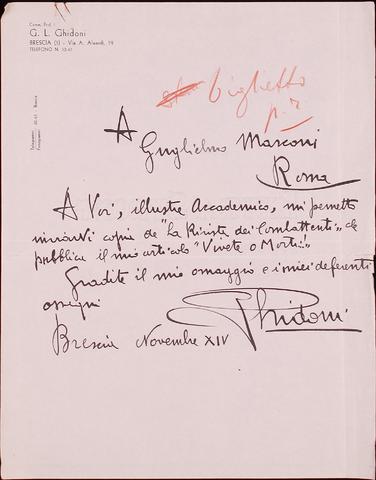 Comm. Prof.
G. L. Ghidoni
BRESCIA (I) - Via A. Aleardi, 19
TELEFONO N. 32-61
biglietto
p. r.
A
Guglielmo Marconi
Roma
A Voi, illustre Accademico, mi permetto
inviarVi copia de "La Rivista dei Combattenti" che
pubblica il mio articolo "Vivete o Morti!"
Gradite il mio omaggio e i miei deferenti
ossequi
Ghidoni
Brescia Novembre XIV